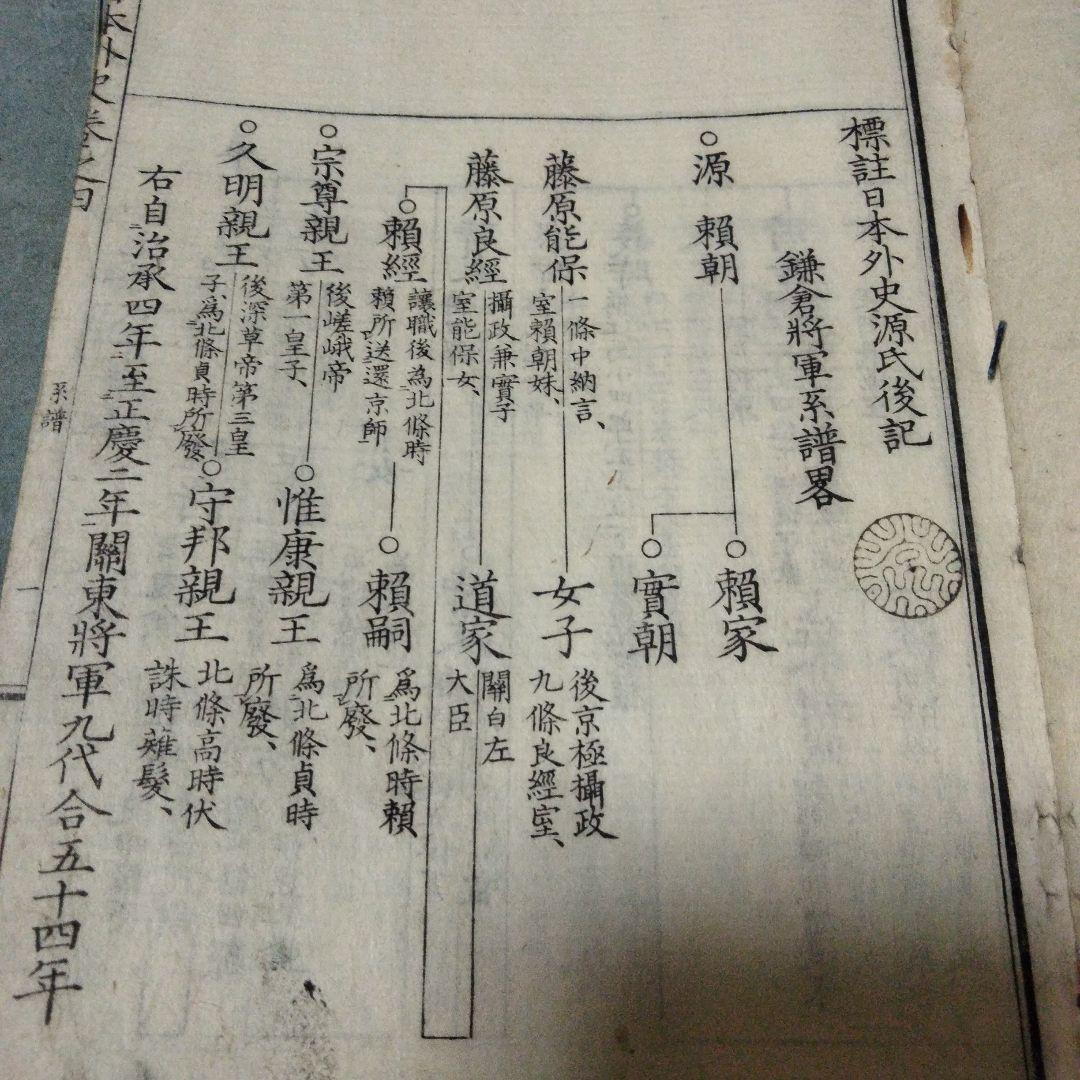 標註日本外史源氏後記
鎌倉將軍系譜畧
○源賴朝
○賴家
○實朝
藤原能保
一條中納言、
室賴朝妹、
女子
後京極攝政
九條良經室、
藤原良經
攝政兼實子
室能保女、
道家
關白左
大臣
○賴經
讓職後爲北條時
賴所送還京師
○賴嗣
爲北條時賴
所廢、
○宗尊親王
後嵯峨帝
第一皇子、
○惟康親王
爲北條貞時
所廢、
○久明親王
後深草帝第三皇
子、爲北條貞時所廢、
○守邦親王
北條高時伏
誅時薙髮、
右自治承四年至正慶二年關東將軍九代合五十四年
本外史卷之四
系譜
一